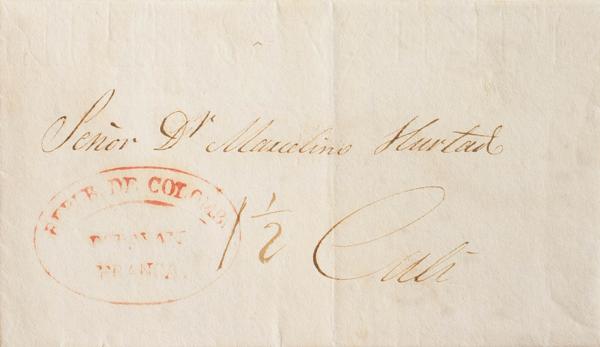 Señor Dr Marcelino Hurtado
REPUB. DE COLOMB.
POPAYAN
FRANCA.
1 1/2
Cali